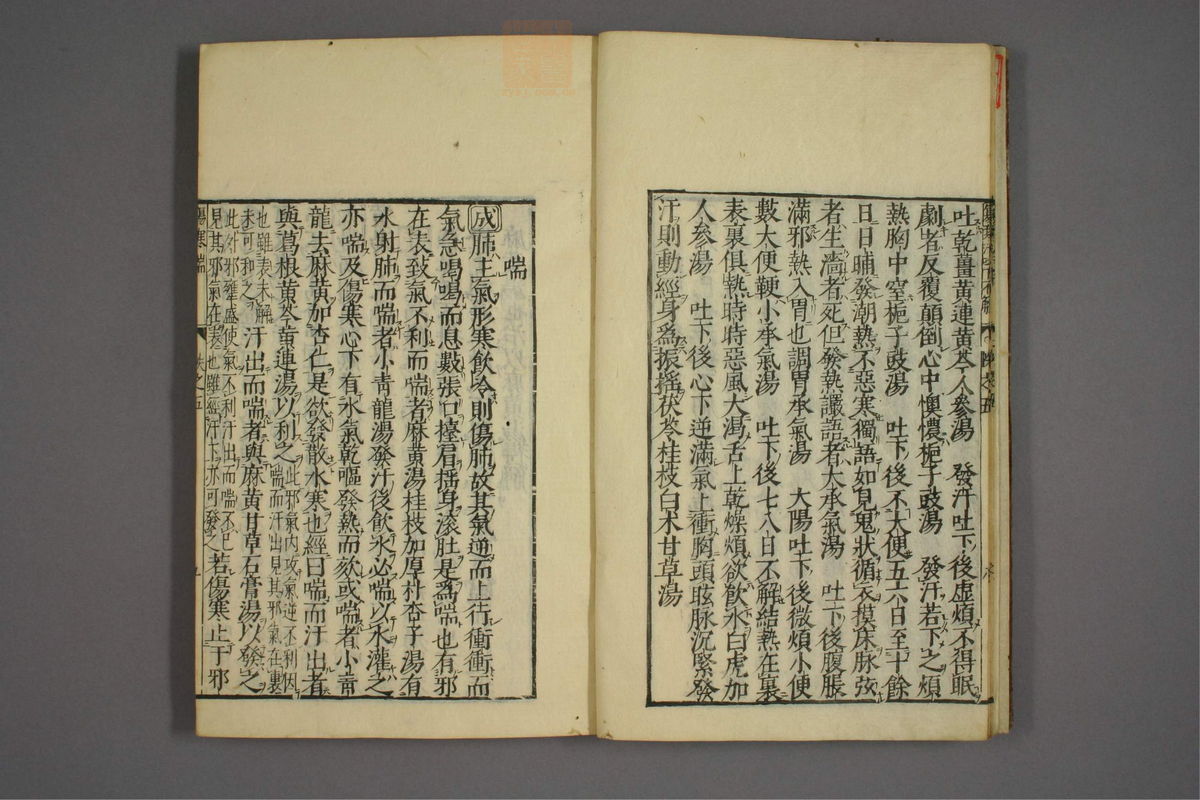 吐乾薑黃連黃芩人參湯　發汗吐下後虛煩不得眠
劇者反覆顛倒心中懊憹梔子豉湯　發汗若下之煩
熱胸中窒梔子豉湯　吐下後不大便五六日至十餘
日日晡發潮熱不惡寒獨語如見鬼狀循衣摸床脉弦
者生濇者死但發熱讝語者大承氣湯　吐下後腹脹
滿邪熱入胃也調胃承氣湯　大陽吐下後微煩小便
數大便鞕小承氣湯　吐下後七八日不解結熱在裏
表裏俱熱時時惡風大渴舌上乾燥煩欲飲水白虎加
人參湯　吐下後心下逆滿氣上衝胸頭眩脉沉緊發
汗則動經身爲振搖茯苓桂枝白术甘草湯
喘
成肺主氣形寒飲冷則傷肺故其氣逆而上行衝衝而
氣急喝喝而息數張口擡肩搖身滚肚是爲喘也有邪
在表致氣不利而喘者麻黃湯桂枝加厚朴杏子湯有
水射肺而喘者小青龍湯發汗後飲水必喘以水灌之
亦喘及傷寒心下有水氣乾嘔發熱而欬或喘者小青
龍去麻黃加杏仁是欲發散水寒也經曰喘而汗出者
與葛根黃芩黃連湯以利之此邪氣內攻氣逆不利因
喘而汗出見其邪氣在裏
也雖表未解
未可和之汗出而喘者與麻黃甘草石膏湯以發之
此外邪雍盛使氣不利汗出而喘不已
見其邪氣在表也雖經汗下亦可發之若傷寒止于邪
傷寒喘
卷之五
五